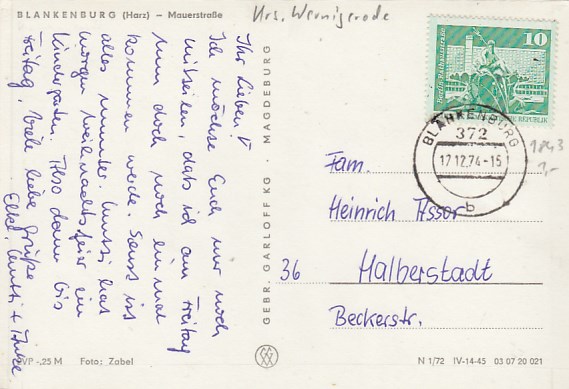 BLANKENBURG (Harz) – Mauerstraße
Krs. Wernigerode
Ihr Lieben!
Ich möchte Euch nur noch
mitteilen, daß ich am Freitag
nun doch noch einmal
kommen werde. Sonst ist
alles munter. Mutti hat
morgen Weihnachtsfeier im
Kindergarten. Also dann bis
Freitag. Viele liebe Grüße
Mutti +
GEBR. GARLOFF KG · MAGDEBURG
10
Berlin, Rathausstraße
REPUBLIK
BLANKENBURG
372
17.12.74-15
b
1843
1,-
Fam.
Heinrich Assor
36 Halberstadt
Beckerstr.
VP -,25 M Foto: Zabel
N 1/72 IV-14-45 03 07 20 021